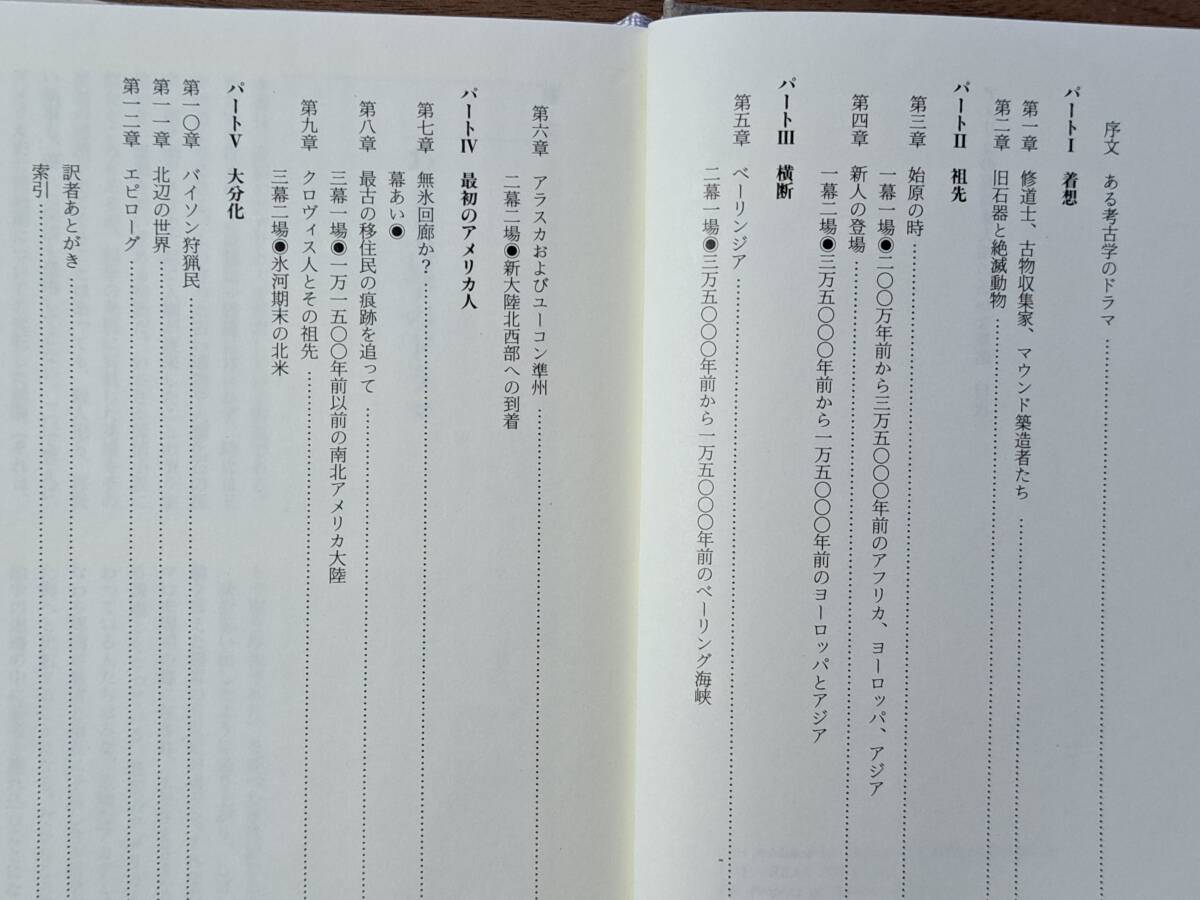 序文　ある考古学のドラマ……………………
パートⅠ　着想
第一章　修道士、古物収集家、マウンド築造者たち……………………
第二章　旧石器と絶滅動物……………………
パートⅡ　祖先
第三章　始原の時……………………
一幕一場◉二〇〇万年前から三万五〇〇〇年前のアフリカ、ヨーロッパ、アジア
第四章　新人の登場……………………
一幕二場◉三万五〇〇〇年前から一万五〇〇〇年前のヨーロッパとアジア
パートⅢ　横断
第五章　ベーリンジア……………………
二幕一場◉三万五〇〇〇年前から一万五〇〇〇年前のベーリング海峡
第六章　アラスカおよびユーコン準州……………………
二幕二場◉新大陸北西部への到着
パートⅣ　最初のアメリカ人
第七章　無氷回廊か？……………………
幕あい◉
第八章　最古の移住民の痕跡を追って……………………
三幕一場◉一万一五〇〇年前以前の南北アメリカ大陸
第九章　クロヴィス人とその祖先……………………
三幕二場◉氷河期末の北米
パートⅤ　大分化
第一〇章　バイソン狩猟民……………………
第一一章　北辺の世界……………………
第一二章　エピローグ……………………
訳者あとがき……………………
索引……………………